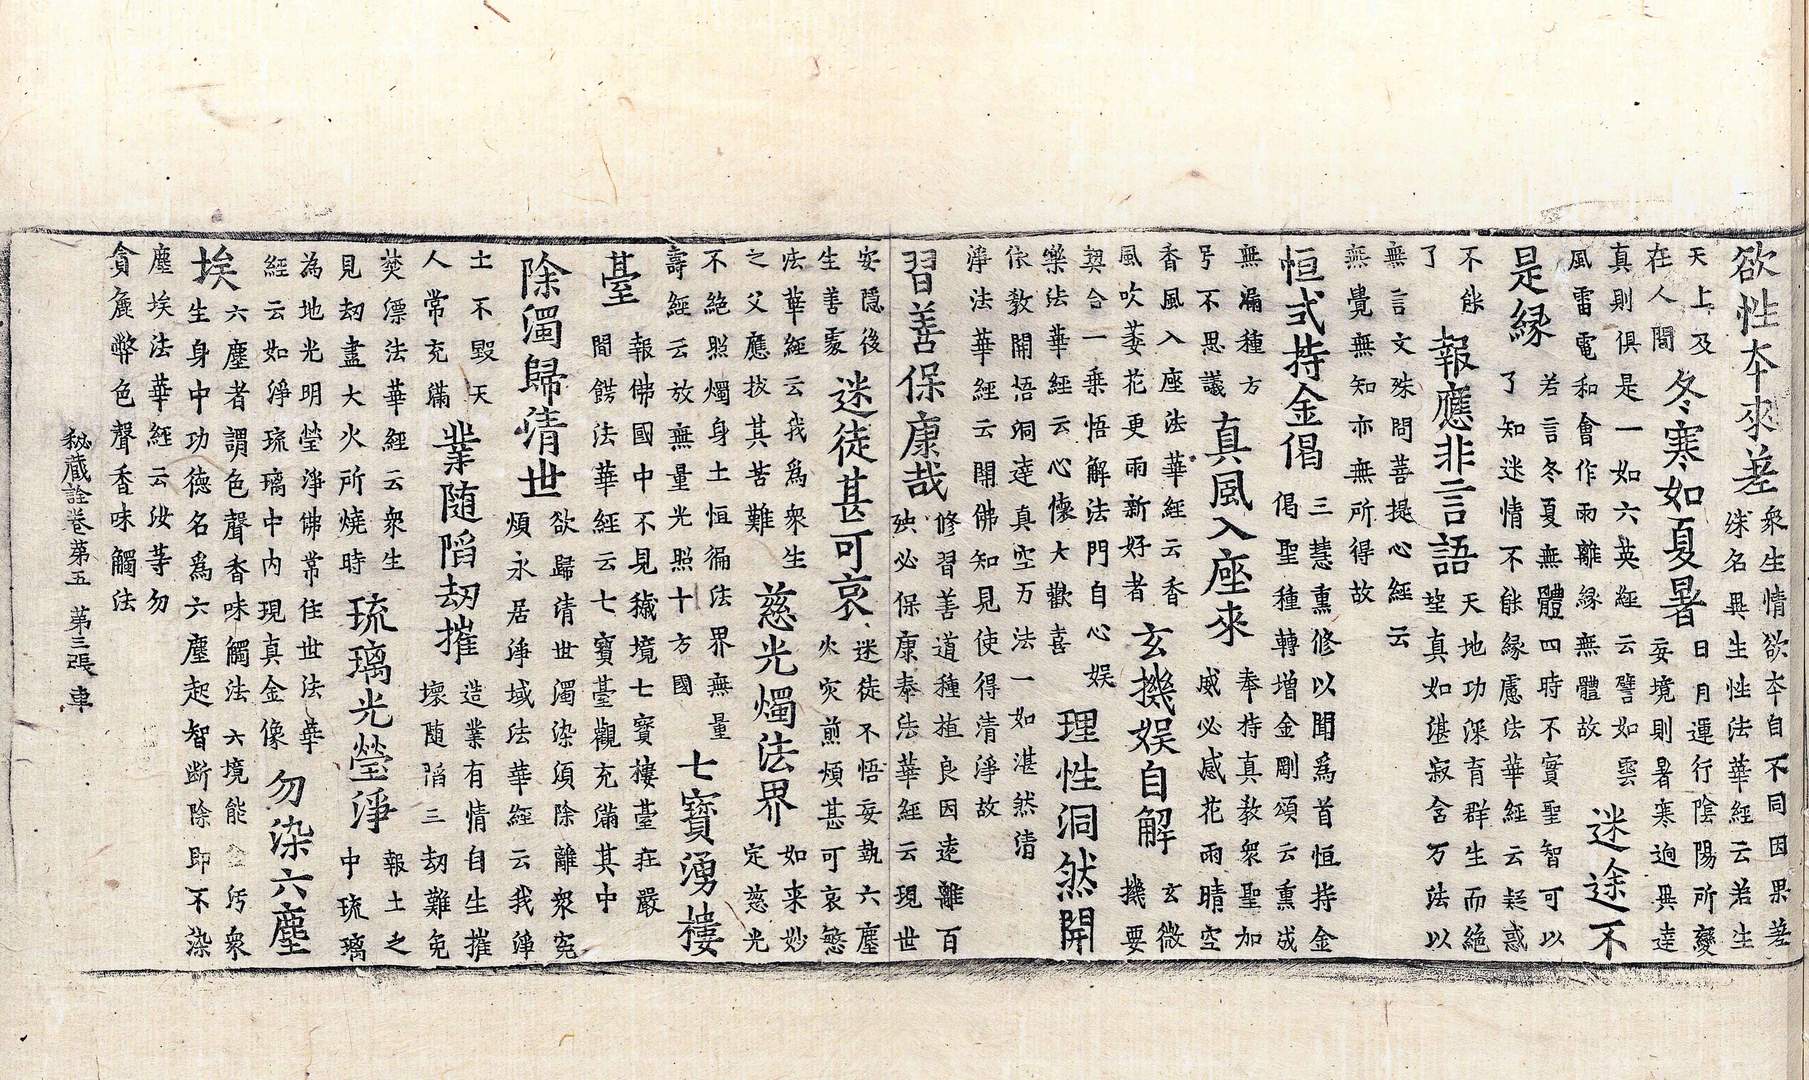 欲性本來差
衆生情欲本自不同因果差
殊名異生性法華經云若生
天上及
在人間
冬寒如夏暑
日月運行陰陽所變
妄境則暑寒逈異達
真則俱是一如六英經云譬如雲
風雷電和會作雨離緣無體故
迷途不
是緣
若言冬夏無體四時不實聖智可以
了知迷情不能緣慮法華經云疑惑
不能
了
報應非言語
天地功深育群生而絶
望真如湛寂含万法以
無言文殊問菩提心經云
無覺無知亦無所得故
恒式持金偈
三慧熏修以聞爲首恒持金
偈聖種轉增金剛頌云熏成
無漏種方
号不思議
真風入座來
奉持真教衆聖加
威必感花雨晴空
香風入座法華經云香
風吹萎花更雨新好者
玄機娛自解
玄微
機要
契合一乘悟解法門自心娛
樂法華經云心懷大歡喜
理性洞然開
依教開悟洞達真空万法一如湛然清
淨法華經云開佛知見使得清淨故
習善保康哉
修習善道種植良因遠離百
殃必保康泰法華經云現世
安隱後
生善處
迷徒甚可哀
迷徒不悟妄執六塵
火灾煎煩甚可哀慜
法華經云我爲衆生
之父應拔其苦難
慈光燭法界
如来妙
定慈光
不絶照燭身土恒徧法界無量
壽經云放無量光照十方國
七寶湧樓
臺
報佛國中不見穢境七寶樓臺莊嚴
間餝法華經云七寶臺觀充滿其中
除濁歸清世
欲歸清世濁染須除離衆寃
煩永居淨域法華經云我淨
土不毀天
人常充滿
業随陷劫摧
造業有情自生摧
壞随陷三劫難免
焚漂法華經云衆生
見劫盡大火所燒時
琉璃光瑩淨
報土之
中琉璃
為地光明瑩淨佛常住世法華
經云如淨琉璃中内現真金像
勿染六塵
埃
六塵者謂色聲香味觸法六境能坌汚衆
生身中功德名爲六塵起智斷除即不染
塵埃法華經云汝等勿
貪麁弊色聲香味觸法
秘藏詮卷第五　第三張　車